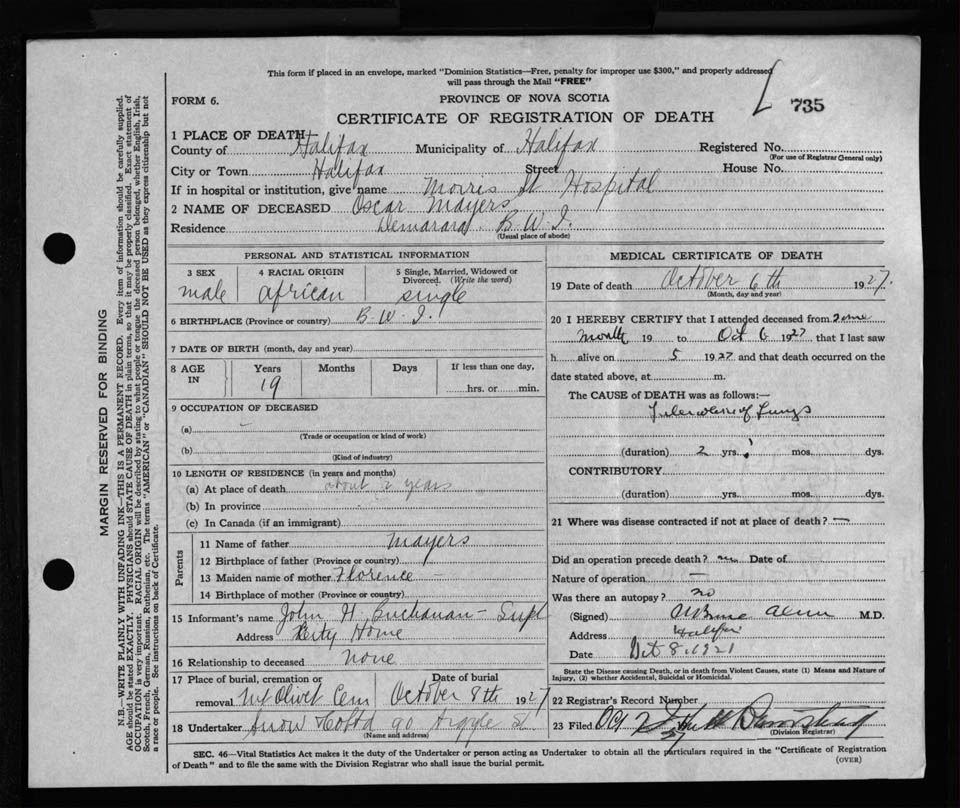 This form if placed in an envelope, marked "Dominion Statistics—Free, penalty for improper use $300," and properly addressed
will pass through the Mail "FREE"
FORM 6.
PROVINCE OF NOVA SCOTIA
735
CERTIFICATE OF REGISTRATION OF DEATH
1 PLACE OF DEATH
County of Halifax Municipality of Halifax Registered No.
(For use of Registrar General only)
City or Town Halifax Street House No.
If in hospital or institution, give name Morris St Hospital
2 NAME OF DECEASED Oscar Mayers
Residence Demarara B.W.I.
(Usual place of abode)
PERSONAL AND STATISTICAL INFORMATION
3 SEX 4 RACIAL ORIGIN 5 Single, Married, Widowed or
Divorced. (Write the word)
male african single
6 BIRTHPLACE (Province or country) B.W.I.
7 DATE OF BIRTH (month, day and year)
8 AGE IN Years Months Days If less than one day,
19 hrs. or min.
9 OCCUPATION OF DECEASED
(a)
(Trade or occupation or kind of work)
(b)
(Kind of industry)
10 LENGTH OF RESIDENCE (in years and months)
(a) At place of death about 2 years
(b) In province
(c) In Canada (if an immigrant)
Parents
11 Name of father Mayers
12 Birthplace of father (Province or country)
13 Maiden name of mother Florence —
14 Birthplace of mother (Province or country)
15 Informant's name John H. Buchanan - Supt
Address City Home
16 Relationship to deceased none
17 Place of burial, cremation or Date of burial
removal Mt Olivet Cem October 8th 1927
18 Undertaker Snow & Co Ltd 90 Argyle St
(Name and address)
MEDICAL CERTIFICATE OF DEATH
19 Date of death October 6th 1927.
(Month, day and year)
20 I HEREBY CERTIFY that I attended deceased from some
months 19 to Oct 6 1927 that I last saw
h alive on 5 1927 and that death occurred on the
date stated above, at m.
The CAUSE of DEATH was as follows:—
Tuberculosis of Lungs
(duration) 2 yrs. mos. dys.
CONTRIBUTORY
(duration) yrs. mos. dys.
21 Where was disease contracted if not at place of death? —
Did an operation precede death? no Date of
Nature of operation —
Was there an autopsy? no
(Signed) M.D.
Address Halifax
Date Oct 8, 1921
State the Disease causing Death, or in death from Violent Causes, state (1) Means and Nature of
Injury, (2) whether Accidental, Suicidal or Homicidal.
22 Registrar's Record Number
23 Filed Oct
(Division Registrar)
SEC. 46—Vital Statistics Act makes it the duty of the Undertaker or person acting as Undertaker to obtain all the particulars required in the "Certificate of Registration
of Death" and to file the same with the Division Registrar who shall issue the burial permit.
(OVER)
MARGIN RESERVED FOR BINDING
N.B.—WRITE PLAINLY WITH UNFADING INK—THIS IS A PERMANENT RECORD. Every item of information should be carefully supplied.
AGE should be stated EXACTLY. PHYSICIANS should STATE CAUSE OF DEATH in plain terms, so that it may be properly classified. Exact statement of
OCCUPATION is very important. RACIAL ORIGIN will be described by stating to what people or tongue the deceased person belonged, whether English, Irish,
Scotch, French, German, Russian, Ruthenian, etc. The terms "AMERICAN" or "CANADIAN" SHOULD NOT BE USED as they express citizenship but not
a race or people. See instructions on back of Certificate.